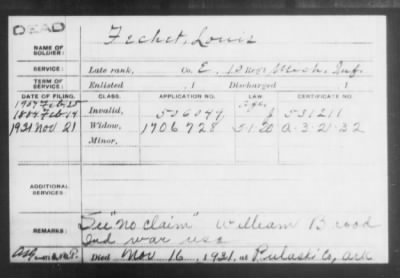 DEAD
NAME OF SOLDIER: Fechet, Louis
SERVICE: Late rank, Co. E, 12 Reg't Mich. Inf.
TERM OF SERVICE: Enlisted , 1 Discharged , 1
DATE OF FILING. CLASS. APPLICATION NO. LAW. CERTIFICATE NO.
1907 Feb 25
1884 Feb 14 Invalid, 531211
1931 Nov 21 Widow, 1706728 5-1-20 A-3-21-32
Minor,
ADDITIONAL SERVICES:
REMARKS: See "no claim" William B wood
Ind war usa
Died Nov 16, 1931, at Pulaski Co, Ark